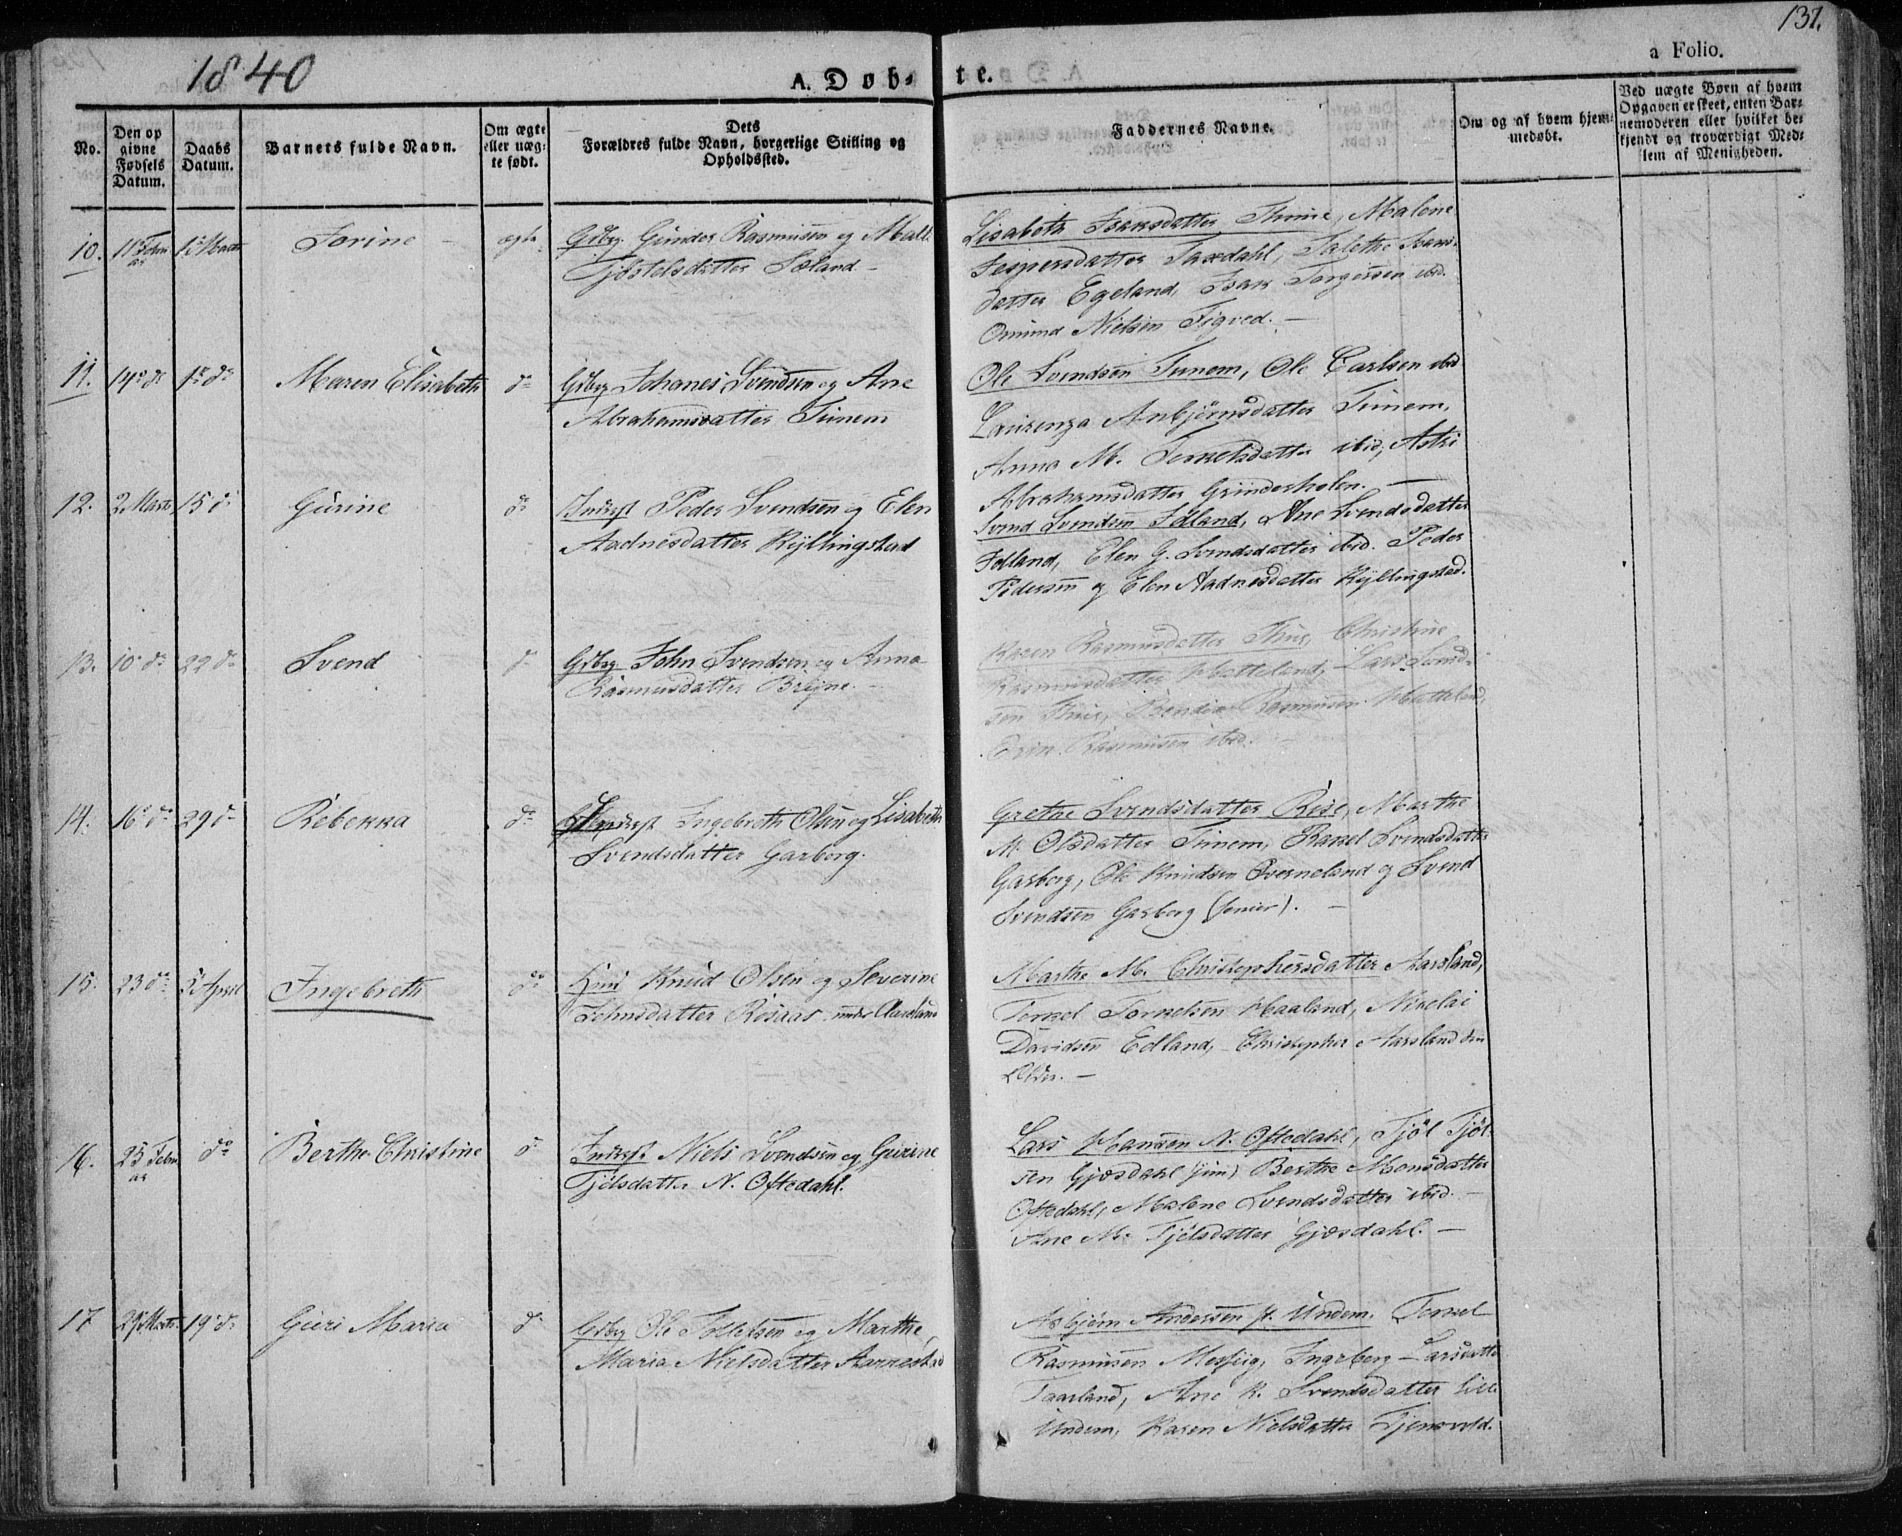 1840
A. Døb-
te.
131.
a Folio.
No.
Den op
givne
Fødsels
Datum.
Daabs
Datum.
Barnets fulde Navn.
Om ægte
eller uæg-
te født.
Dets
Forældres fulde Navn, borgerlige Stilling og
Opholdssted.
Faddernes Navne.
Om og af hvem hjem-
medøbt.
Ved uægte Børn af hvem
Opgaven er skeet, enten Bar-
nemoderen eller hvilket be-
kjendt og troværdigt Med-
lem af Menigheden.
10. 11 Febru
ar
Torine
ægte
Gdbrg. Gunder Rasmussen og Mall.
Tjøstelsdatter Sæland
Lisabeth Isaksdatter Thime, Malene
Jespersdatter Taxdahl, Talette Isaks-
datter Egeland, Isak Torgersen ibd.
Omund Nielsen Tigved.
11. 14 do 1 do
Maren Elisabeth
do
Gdbrg. Johanes Svendsen og Ane
Abrahamsdatter Tunem
Ole Svendsen Tunem, Ole Carlsen ibd
Laurenza Anbjørnsdatter Tunem,
Anna M. Torkelsdatter ibid, Astri
Abrahamsdatter Grinderholen.
12. 2 Marts 15 do
Gurine
do
Inderst Peder Svendsen og Elen
Aadnesdatter Kyllingstad
Svend Svendsen Edland, Ane Svendsdatter
Edland, Elen G. Svendsdatter ibd. Peder
Pedersen og Elen Aadnesdatter Kyllingstad.
13. 10 do 22 do
Svend
do
Gdbrg. John Svendsen og Anna
Rasmusdatter Bryne.
Karen Rasmusdatter Thue, Christine
Rasmusdatter Hatteland, Lars Svend-
sen Thue, Rasmusen Hatteland,
Rasmusen ibd.
14. 16 do 29 do
Rebekka
do
Inderst Ingebreth Olsen og Lisabeth
Svendsdatter Garborg.
Grethe Svendsdatter Rise, Marthe
M. Olsdatter Tunem, Rakel Svendsdatter
Garborg, Ole Knudsen Qverneland og Svend
Svendsen Garborg (senior).
15. 23 do 5 April
Ingebreth
do
Knud Olsen og Severine
Johnsdatter Rosaas under Aarsland
Marthe M. Christophersdatter Aarsland,
Torkel Torkelsen Haaland, Nikolai
Davidsen Edland, Christopher Aarsland den
Ældre.
16. 25 Febru
ar
do
Berthe Christine
do
Inderst Niels Svendsen og Gurine
Tjølsdatter N. Oftedahl.
Lars Hansen N. Oftedahl, Tjøl Tjøl-
sen Gjøsdahl (jun) Berthe Monsdatter
Oftedahl, Malene Svendsdatter ibid.
Ane M. Tjølsdatter Gjøsdahl.
17 29 Marts 19 do
Guri Maria
do
Gdbrg Ole Tollefsen og Marthe
Maria Nielsdatter Aarrestad
Asbjørn Andersen st. Undem. Torkel
Rasmusen Mosfuig, Ingeborg Larsdatter
Taarland, Ane K. Svendsdatter Lille
Undem, Karen Nielsdatter Tjensvold.